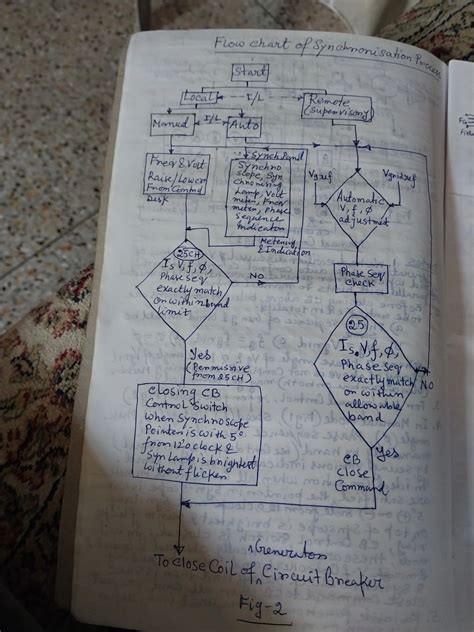 Flow chart of Synchronisation Process
Start
Local
I/L
Remote
(Supervisory)
Manual
I/L
Auto
Freq & Volt
Raise/Lower
From Control
Desk
Synch Panel
Synchro
scope, Syn
chronising
Lamp, Volt
meter, Freq
meter, Phase
Sequence
Indicator
Metering
& Indication
Vgref
Vgridref
Automatic
V, f, φ
adjustment
Phase Seq
check
25CH
Is V, f, φ,
Phase Seq
exactly match
or within band
limit
NO
Yes
(Permissive
from 25CH)
25
Is V, f, φ,
Phase Seq
exactly match
or within
allowable
band
NO
Yes
Closing CB
Control Switch
when Synchroscope
Pointer is with 5°
from 12 o'clock &
Syn Lamp is brightest
without flicker
CB
Close
Command
To close Coil of Generator Circuit Breaker
Fig-2